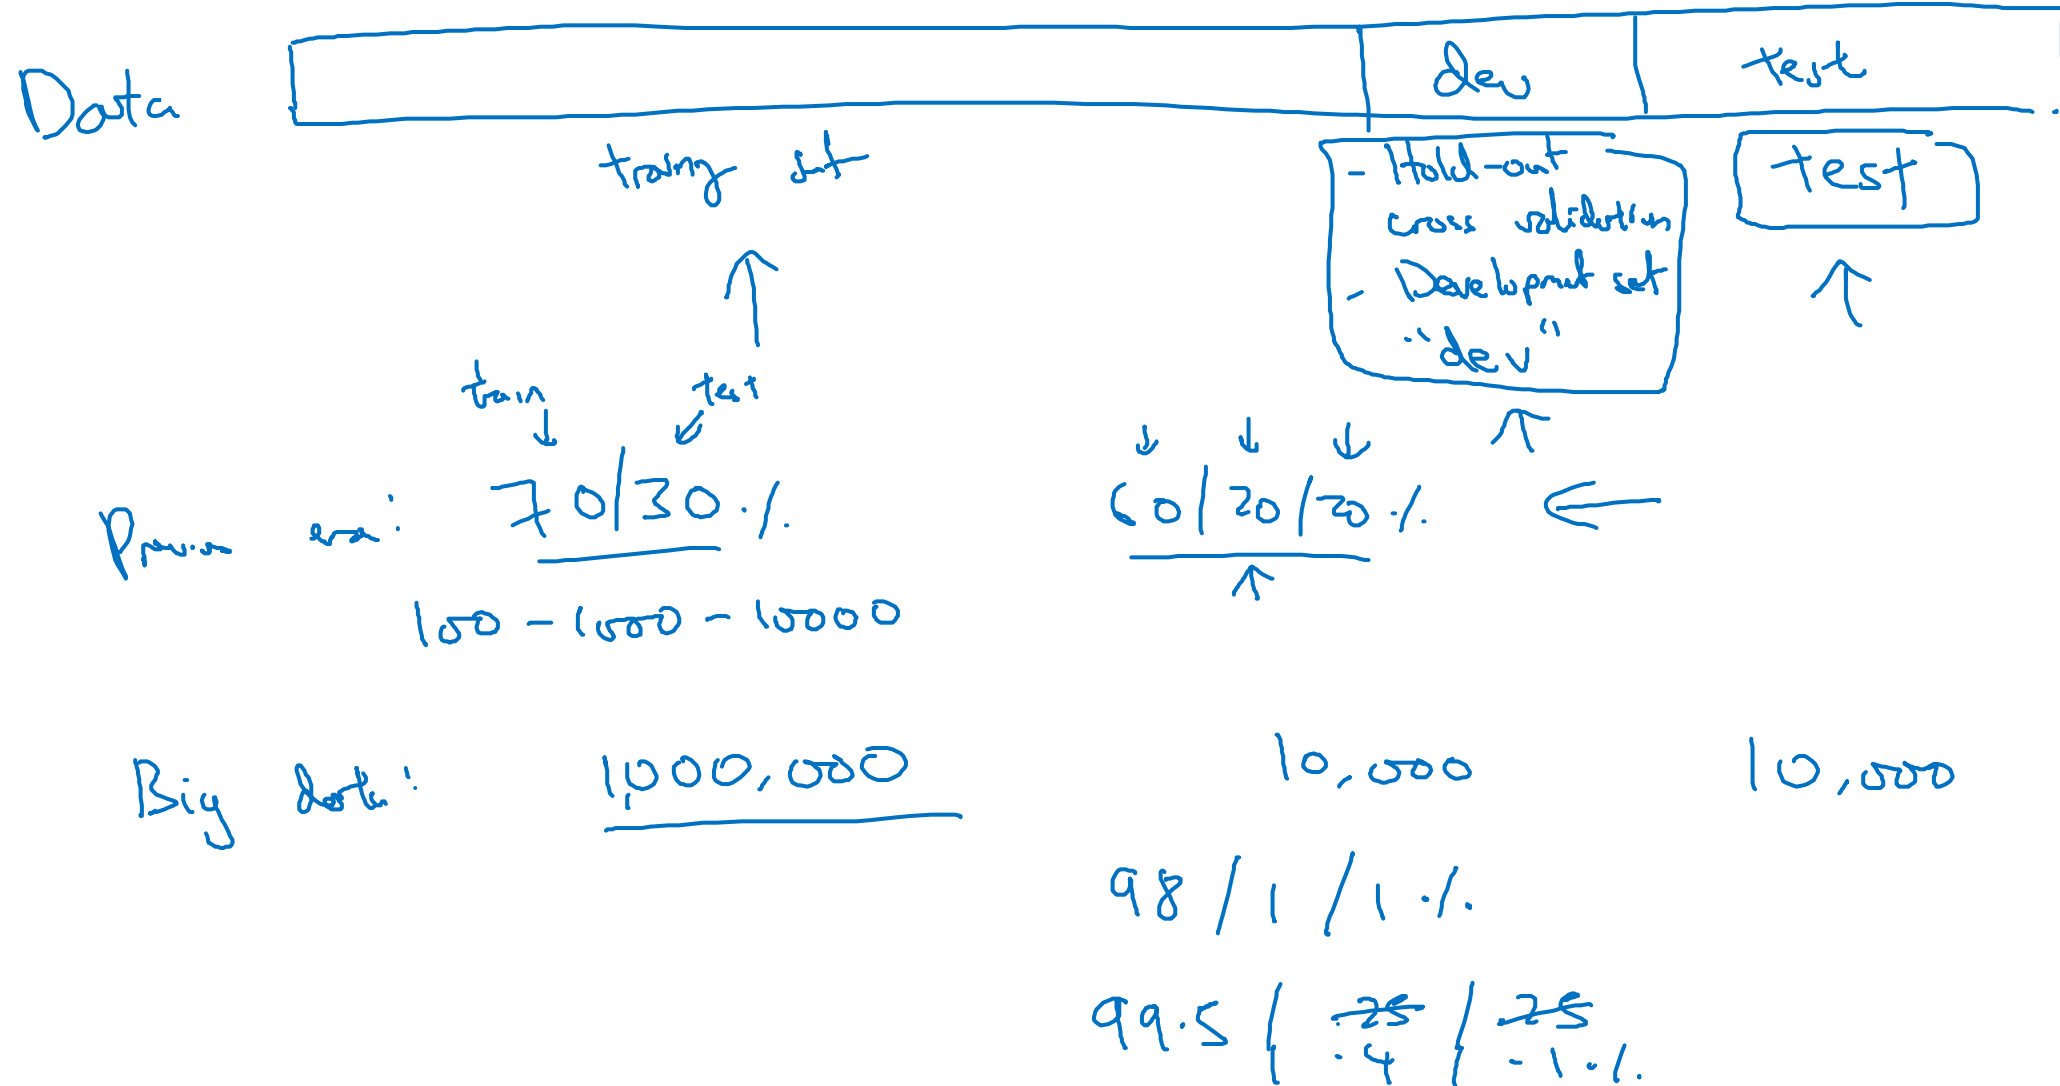 Data dev test
training set
- Hold-out
cross validation
- Development set
"dev"
test
train test
Previous era: 70/30 % 60/20/20 %
100 - 1000 - 10000
Big data: 1,000,000 10,000 10,000
98 / 1 / 1 %
99.5 / .25 / .25
.4 / .1 %